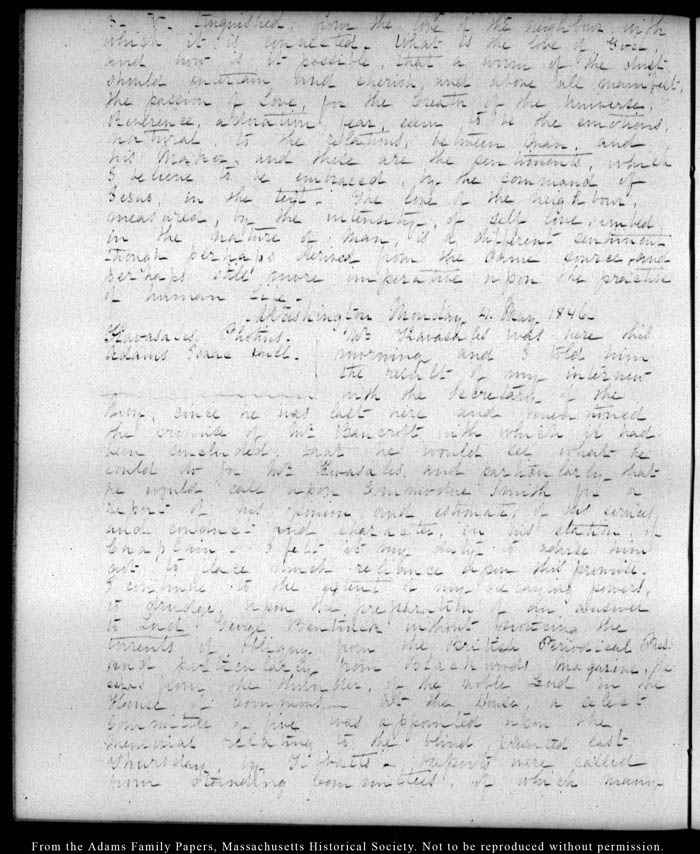 3. IV. tinguished, from the love of the neighbour with
which it is connected. What is the love of God,
and how is it possible, that a worm of the dust
should entertain and cherish, and above all manifest,
the passion of Love, for the Creator of the Universe.
Reverence, adoration, fear, seem to be the emotions,
natural, to the relations, between man, and
his Maker, and these are the sentiments, which
I believe to be embraced, by the command of
Jesus, in the text. The love of the neighbour,
measured, by the intensity, of self love, imbed
in the nature of man, is a different sentiment
though perhaps derived from the same source, and
perhaps still more imperative upon the practise
of human life.
Washington Monday 4. May 1846
Kavasales, Photius.
Adams Isaac Hull.
Mr Kavasales was here this
morning and I told him
the result of my interview
with the Secretary of the
Navy, since he was last here and mentioned
the promise of Mr Bancroft, with which it had
been concluded, that he would see what he
could do for Mr Kavasales, and particularly that
he would call upon Commodore Smith for a
report of his opinion and estimate, of his services,
and conduct and character, in his station, of
Chaplain. I felt it my duty to advise him
not to place much reliance upon this promise.
I continue to the extent of my decaying powers,
to drudge, upon the preparation of an answer
to Lord George Bentinck without noticing the
torrents of obloquy from the British Periodical Press
and particularly from Blackwoods Magazine,
from the thunder, of the noble Lord in the
House of Commons. At the House, a select
Committee of five was appointed upon the
memorial relating to the blind, presented last
Thursday by Tibbatts. Reports were called
from standing Committees, of which many
From the Adams Family Papers, Massachusetts Historical Society. Not to be reproduced without permission.